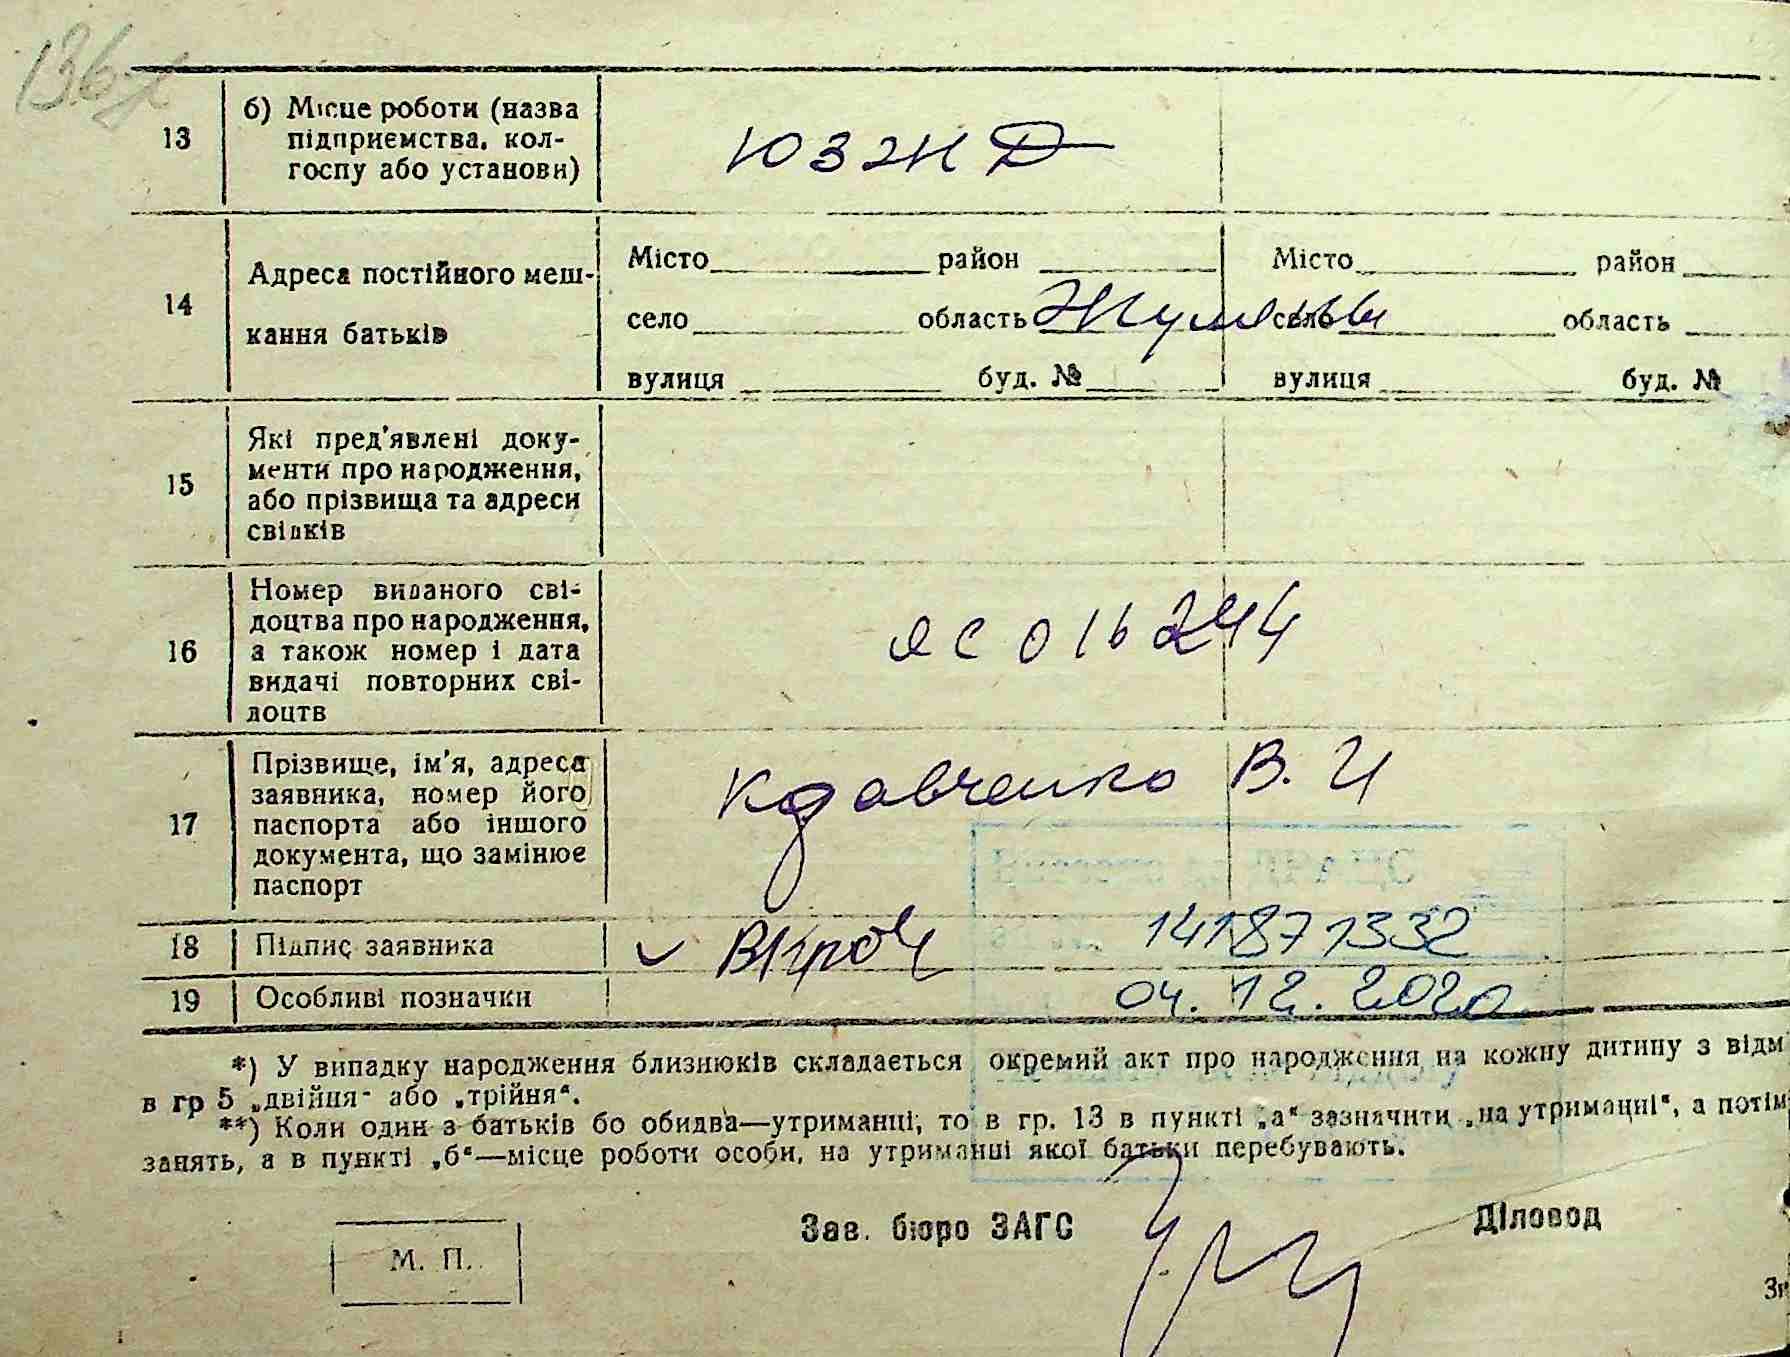 13
б) Місце роботи (назва
підприємства, кол-
госпу або установи)
ЮЗЖД
14
Адреса постійного меш-
кання батьків
Місто район Місто район
село область Жуляны село область
вулиця буд. № вулиця буд. №
15
Які пред'явлені доку-
менти про народження,
або прізвища та адреси
свідків
16
Номер виданого сві-
доцтва про народження,
а також номер і дата
видачі повторних сві-
доцтв
ЯС 016244
17
Прізвище, ім'я, адреса
заявника, номер його
паспорта або іншого
документа, що замінює
паспорт
Кравченко В. И
18 Підпис заявника
141871332
19 Особливі позначки 04.12.2020
*) У випадку народження близнюків складається окремий акт про народження на кожну дитину з відм
в гр 5 „двійня" або „трійня".
**) Коли один з батьків бо обидва—утриманці, то в гр. 13 в пункті „а" зазначити „на утриманні", а потім
занять, а в пункті „б"—місце роботи особи, на утриманні якої батьки перебувають.
Зав. бюро ЗАГС Діловод
М. П.